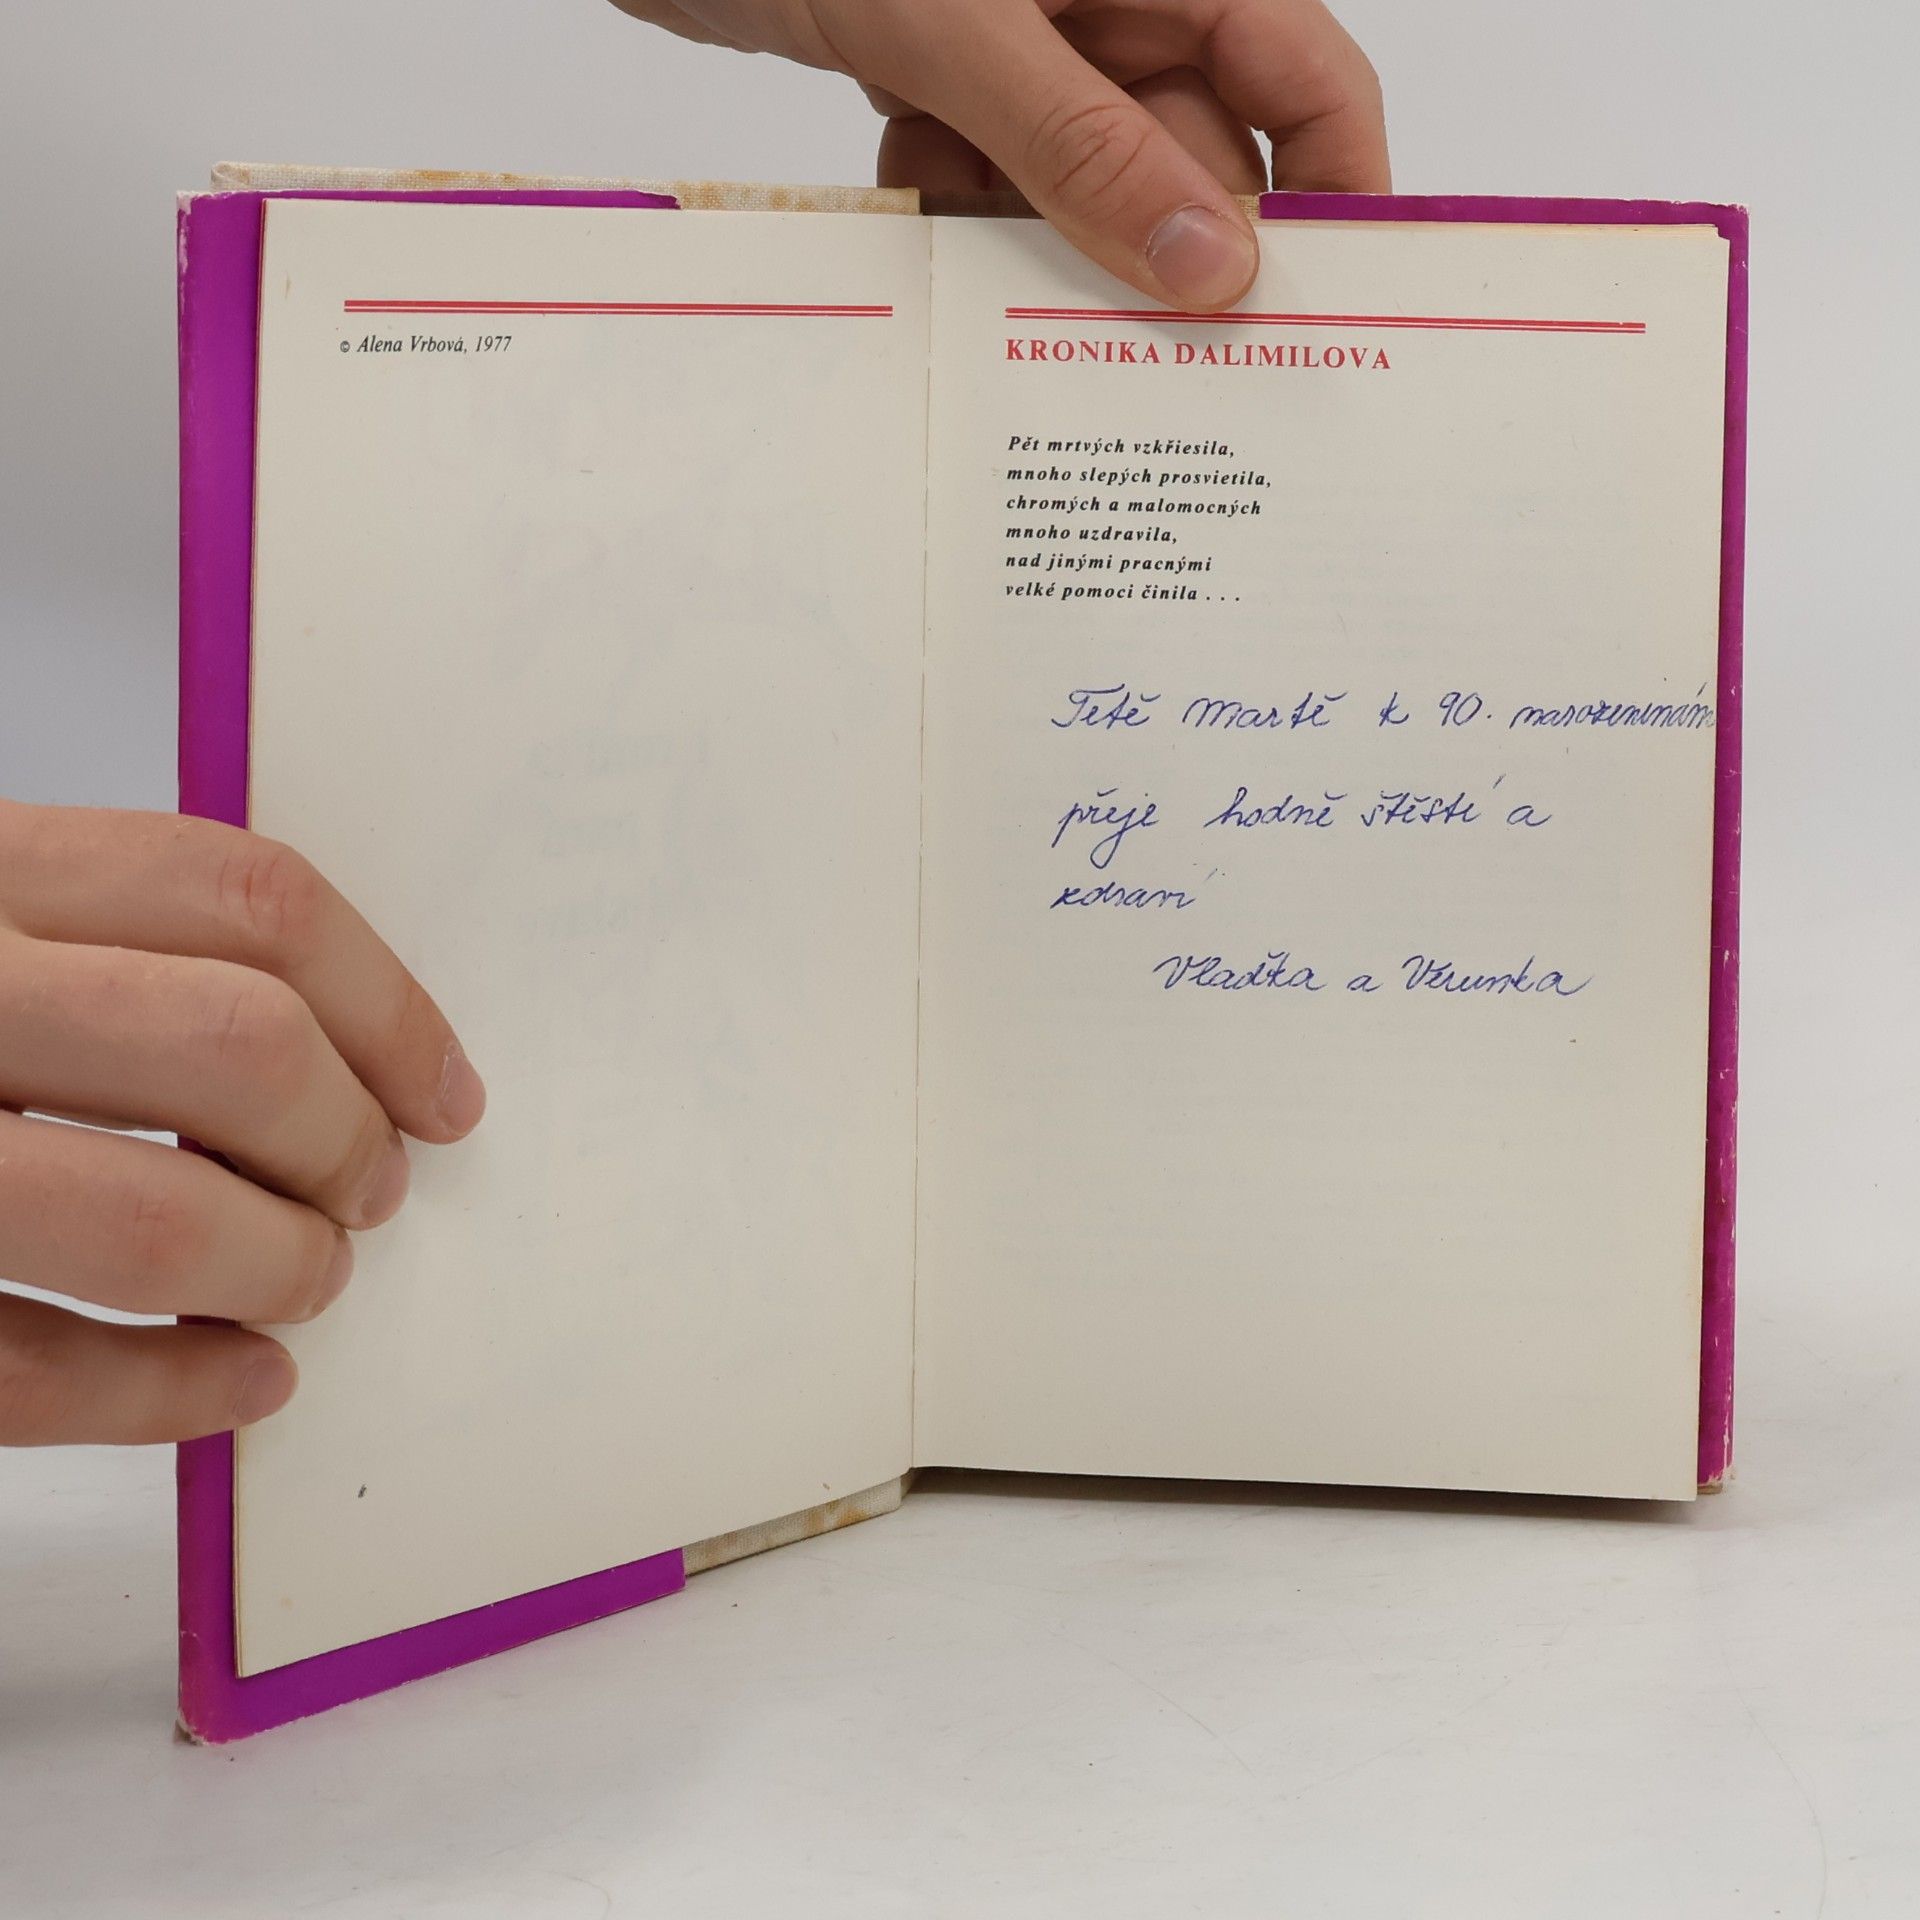 © Alena Vrbová, 1977
KRONIKA DALIMILOVA
Pět mrtvých vzkřiesila,
mnoho slepých prosvietila,
chromých a malomocných
mnoho uzdravila,
nad jinými pracnými
velké pomoci činila . . .
Tetě Martě k 90. narozeninám
přeje hodně štěstí a
zdraví
Vlaďka a Verunka